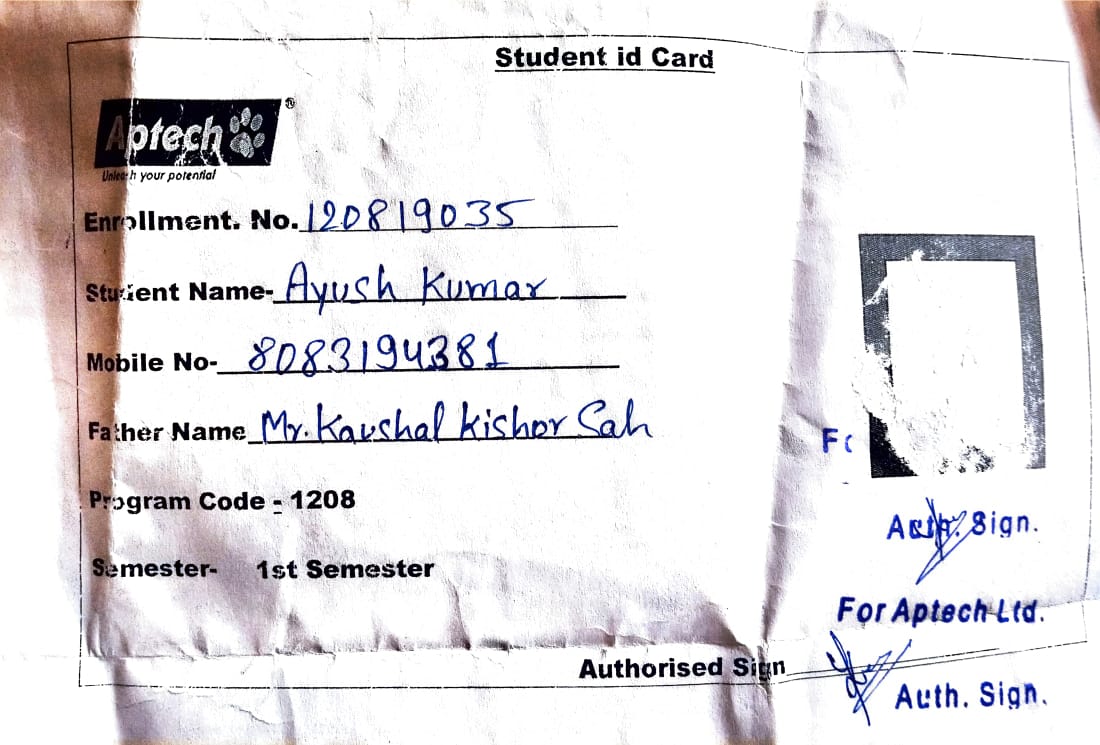 Student id Card
Aptech®
Unleash your potential
Enrollment. No. 120819035
Student Name- Ayush Kumar
Mobile No- 8083194381
Father Name Mr. Kaushal Kishor Sah
Program Code - 1208
Semester- 1st Semester
Auth. Sign.
For Aptech Ltd.
Authorised Sign
Auth. Sign.